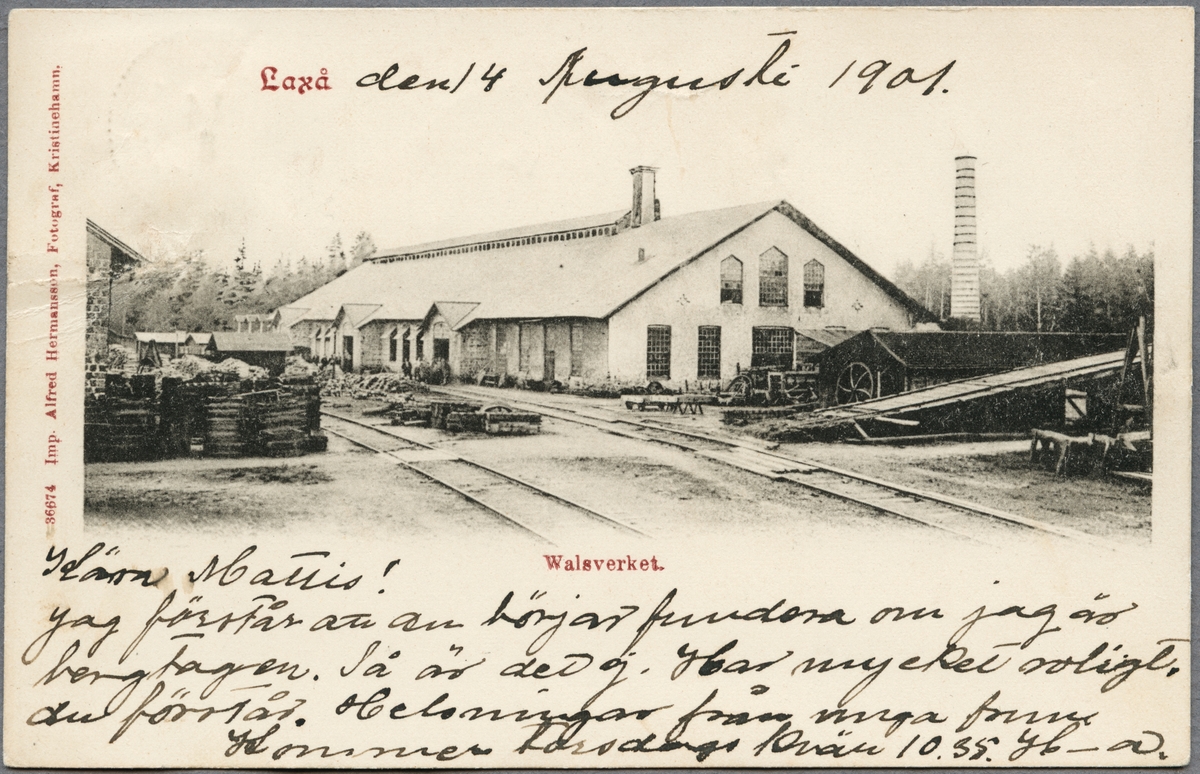 Laxå den 14 Augusti 1901.
36674 Imp. Alfred Hermansson, Fotograf, Kristinehamn.
Walsverket.
Kära Mattis!
Jag förstår att du börjat fundera om jag är
bergtagen. Så är det ej. Har mycket roligt,
du förstår. Helsningar från unga frun
Kommer torsdags kväll 10.35. H-a.